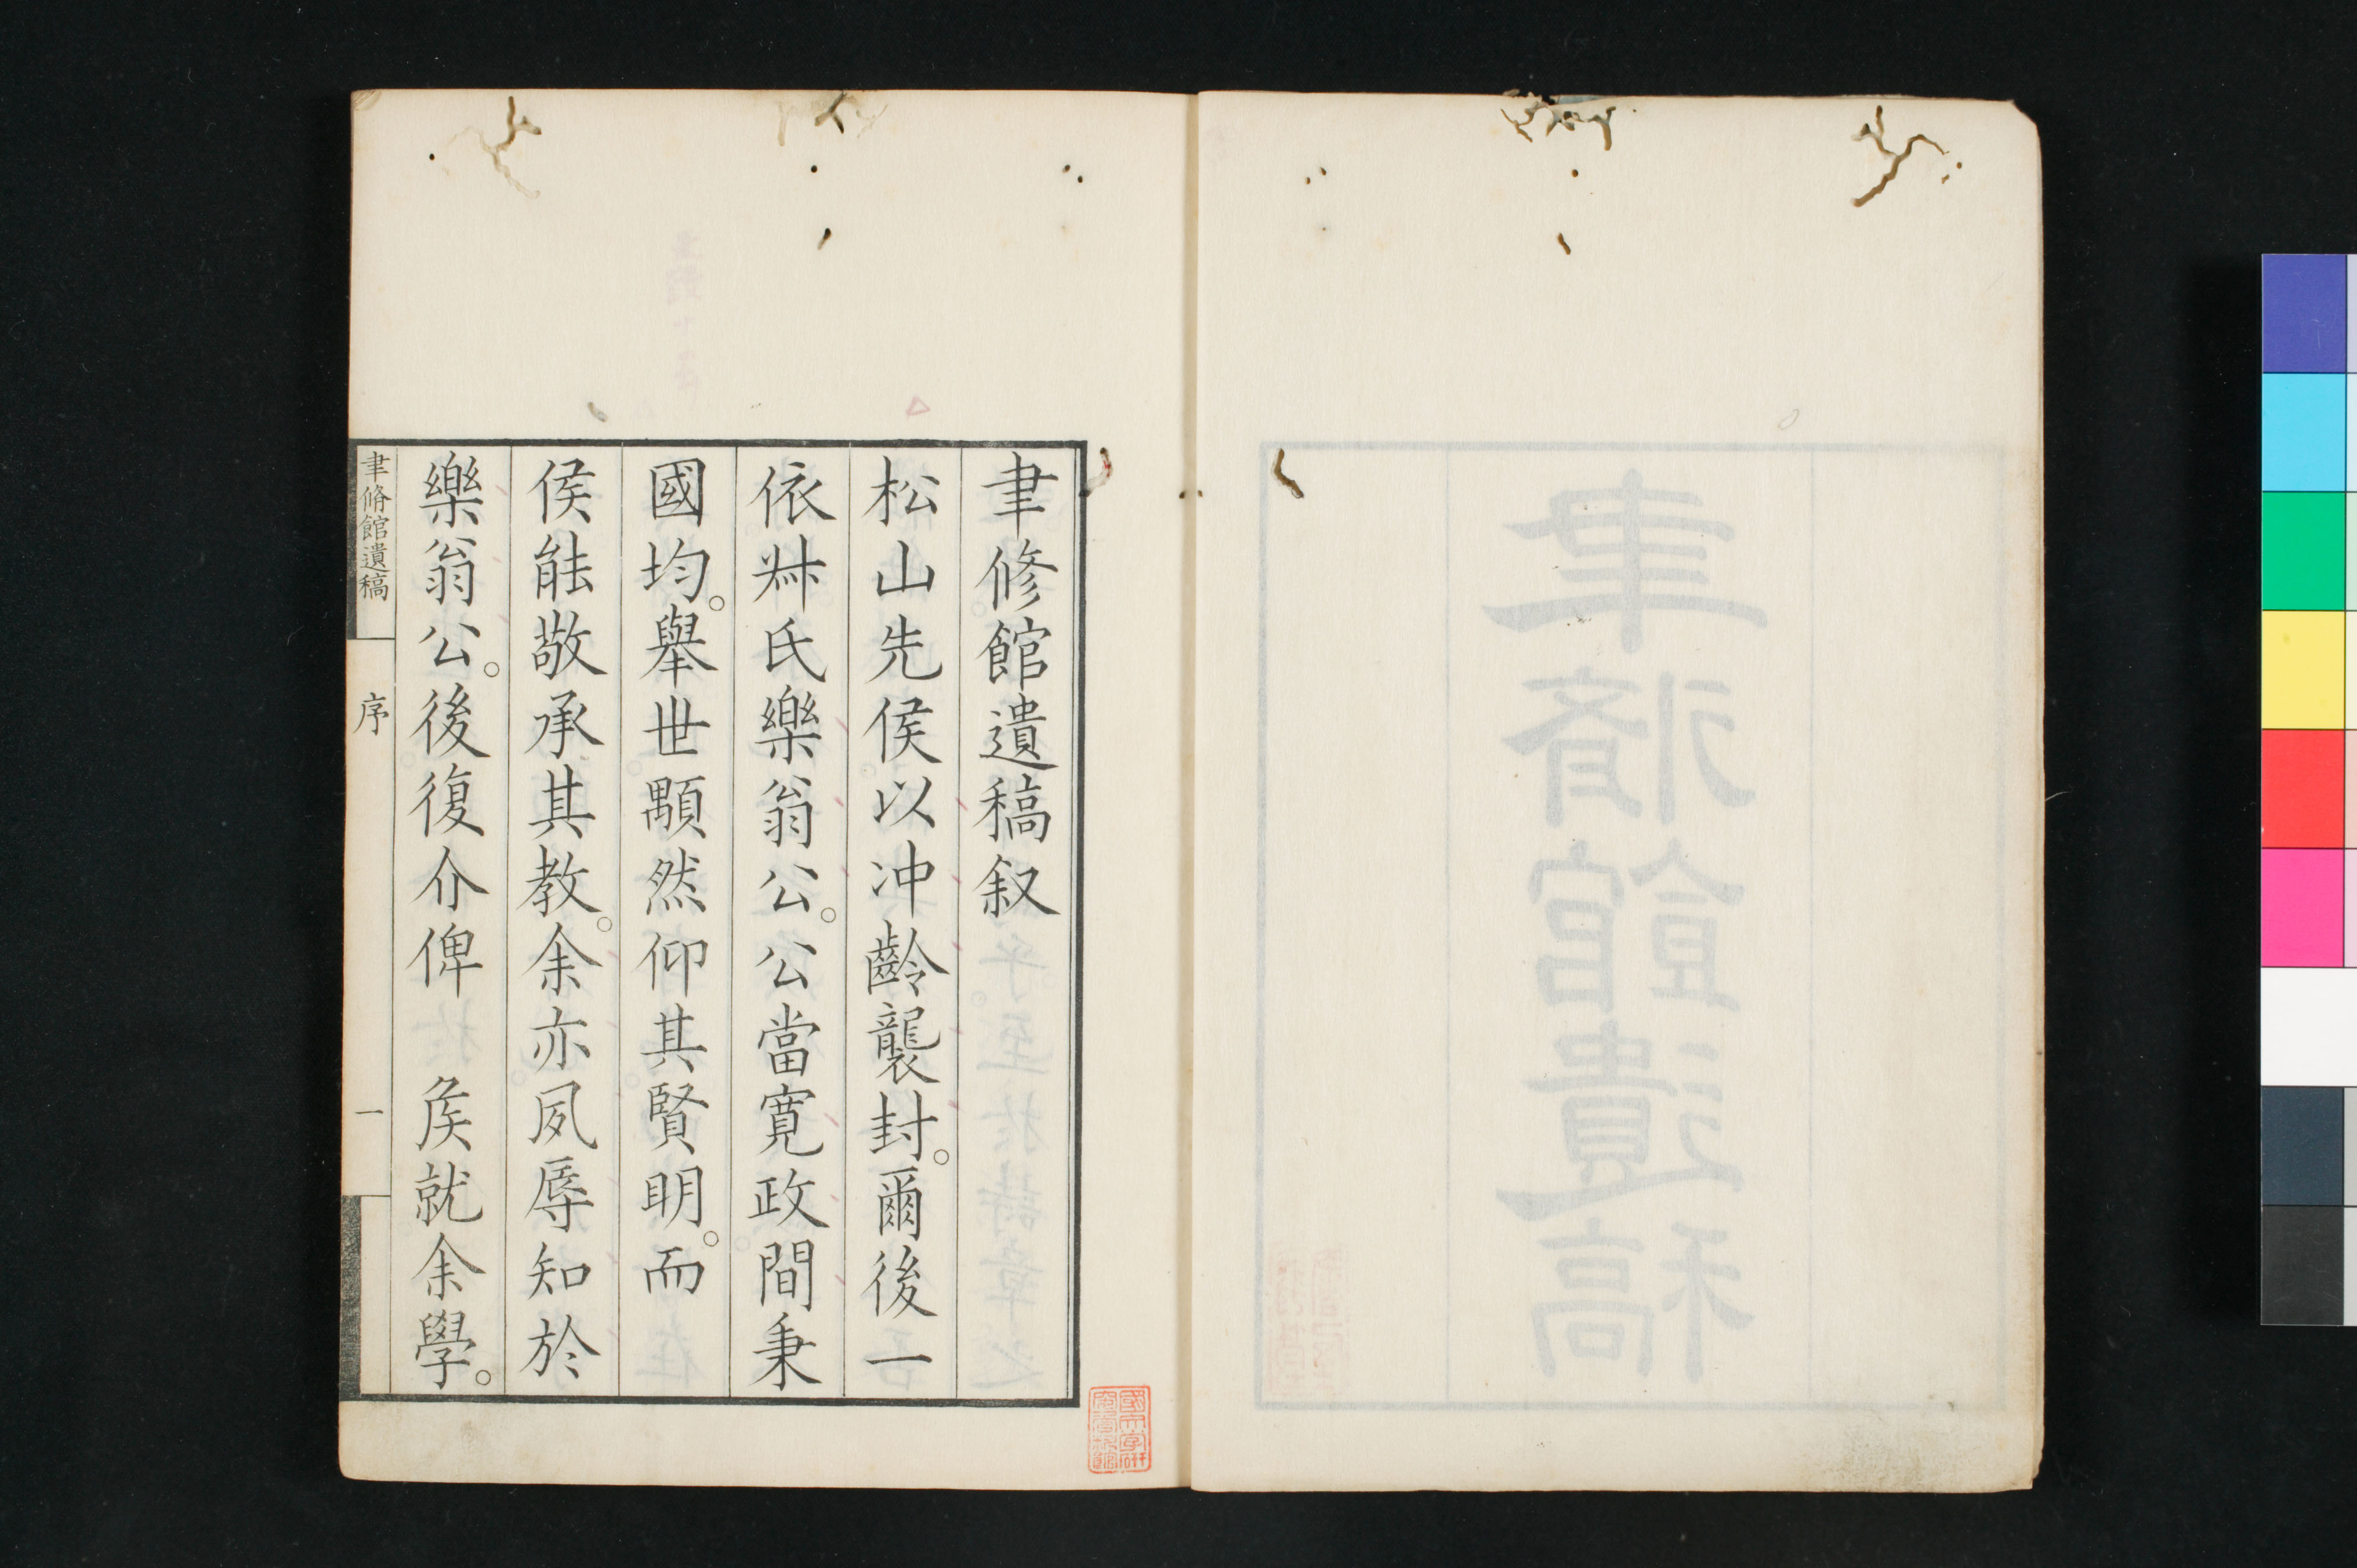 聿修館遺稿叙
松山先侯以冲齡襲封。爾後一
依叔氏樂翁公。公當寬政間秉
國均。舉世顒然仰其賢明。而
侯能敬承其教。余亦夙辱知於
樂翁公。後復介俾　矦就余學。
聿脩館遺稿　序　一